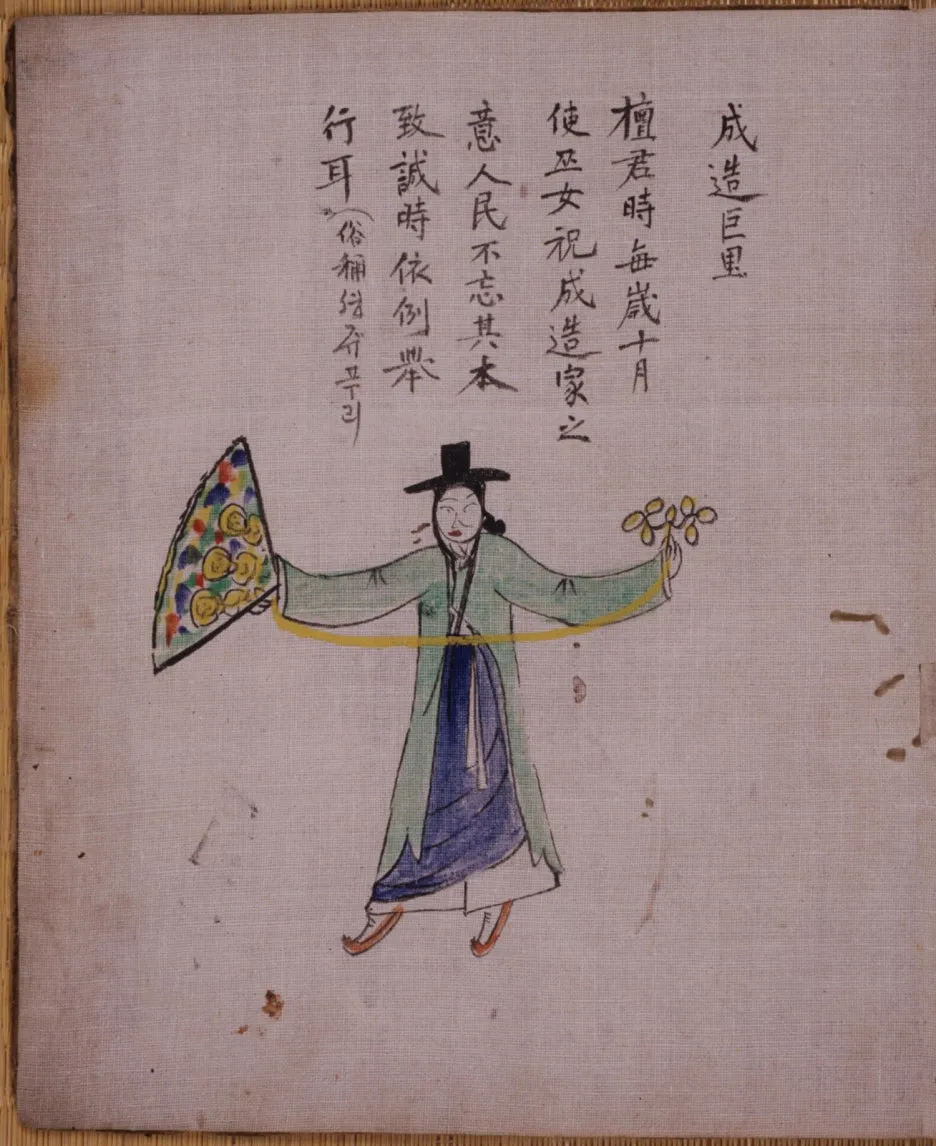 成造巨里
檀君時每歲十月
使巫女祝成造家之
意人民不忘其本
致誠時依例擧
行耳(俗稱셩쥬푸리